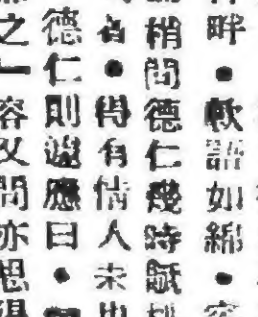 畔●軟語如綿●
梢間德仁幾時
者●得有情人未
德仁則遽應曰●
之一容又問亦